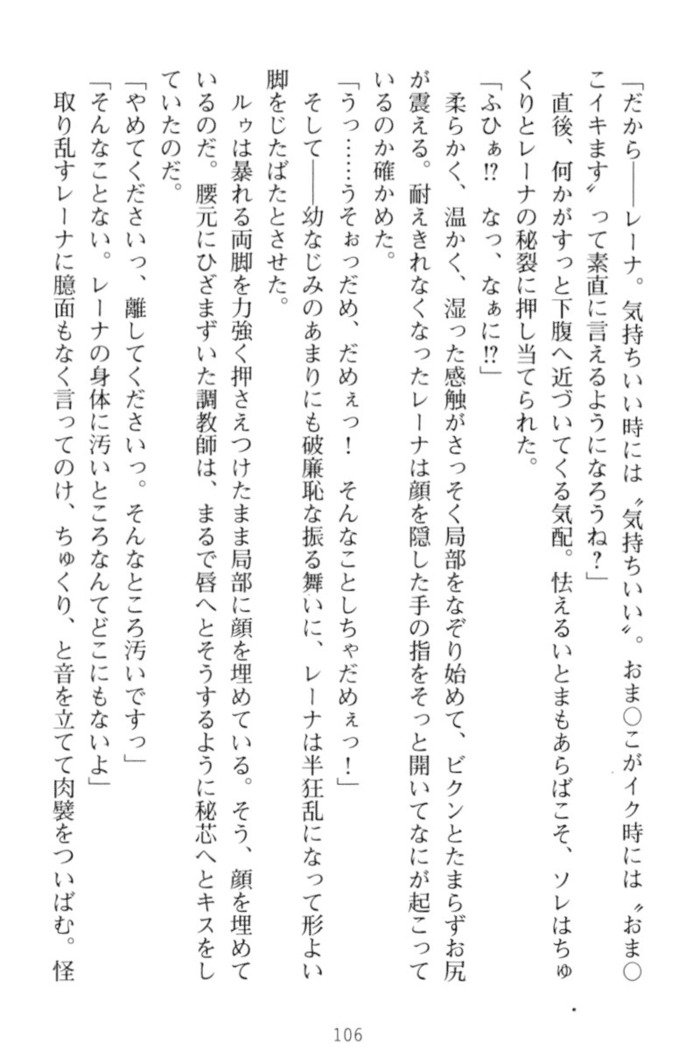 「だから――レーナ。気持ちいい時には〝気持ちいい〟。おま○こがイク時には〝おま○
こイキます〟って素直に言えるようになろうね?」
　直後、何かがすっと下腹へ近づいてくる気配。怯えるいとまもあらばこそ、ソレはちゅ
くりとレーナの秘裂に押し当てられた。
「ふひぁ!?　なっ、なぁに!?」
　柔らかく、温かく、湿った感触がさっそく局部をなぞり始めて、ビクンとたまらずお尻
が震える。耐えきれなくなったレーナは顔を隠した手の指をそっと開いてなにが起こって
いるのか確かめた。
「うっ……うそぉっだめ、だめぇっ!　そんなことしちゃだめぇっ!」
　そして――幼なじみのあまりにも破廉恥な振る舞いに、レーナは半狂乱になって形よい
脚をじたばたとさせた。
　ルゥは暴れる両脚を力強く押さえつけたまま局部に顔を埋めている。そう、顔を埋めて
いるのだ。腰元にひざまずいた調教師は、まるで唇へとそうするように秘芯へとキスをし
ていたのだ。
「やめてくださいっ、離してくださいっ。そんなところ汚いですっ」
「そんなことない。レーナの身体に汚いところなんてどこにもないよ」
　取り乱すレーナに臆面もなく言ってのけ、ちゅくり、と音を立てて肉襞をついばむ。怪
106